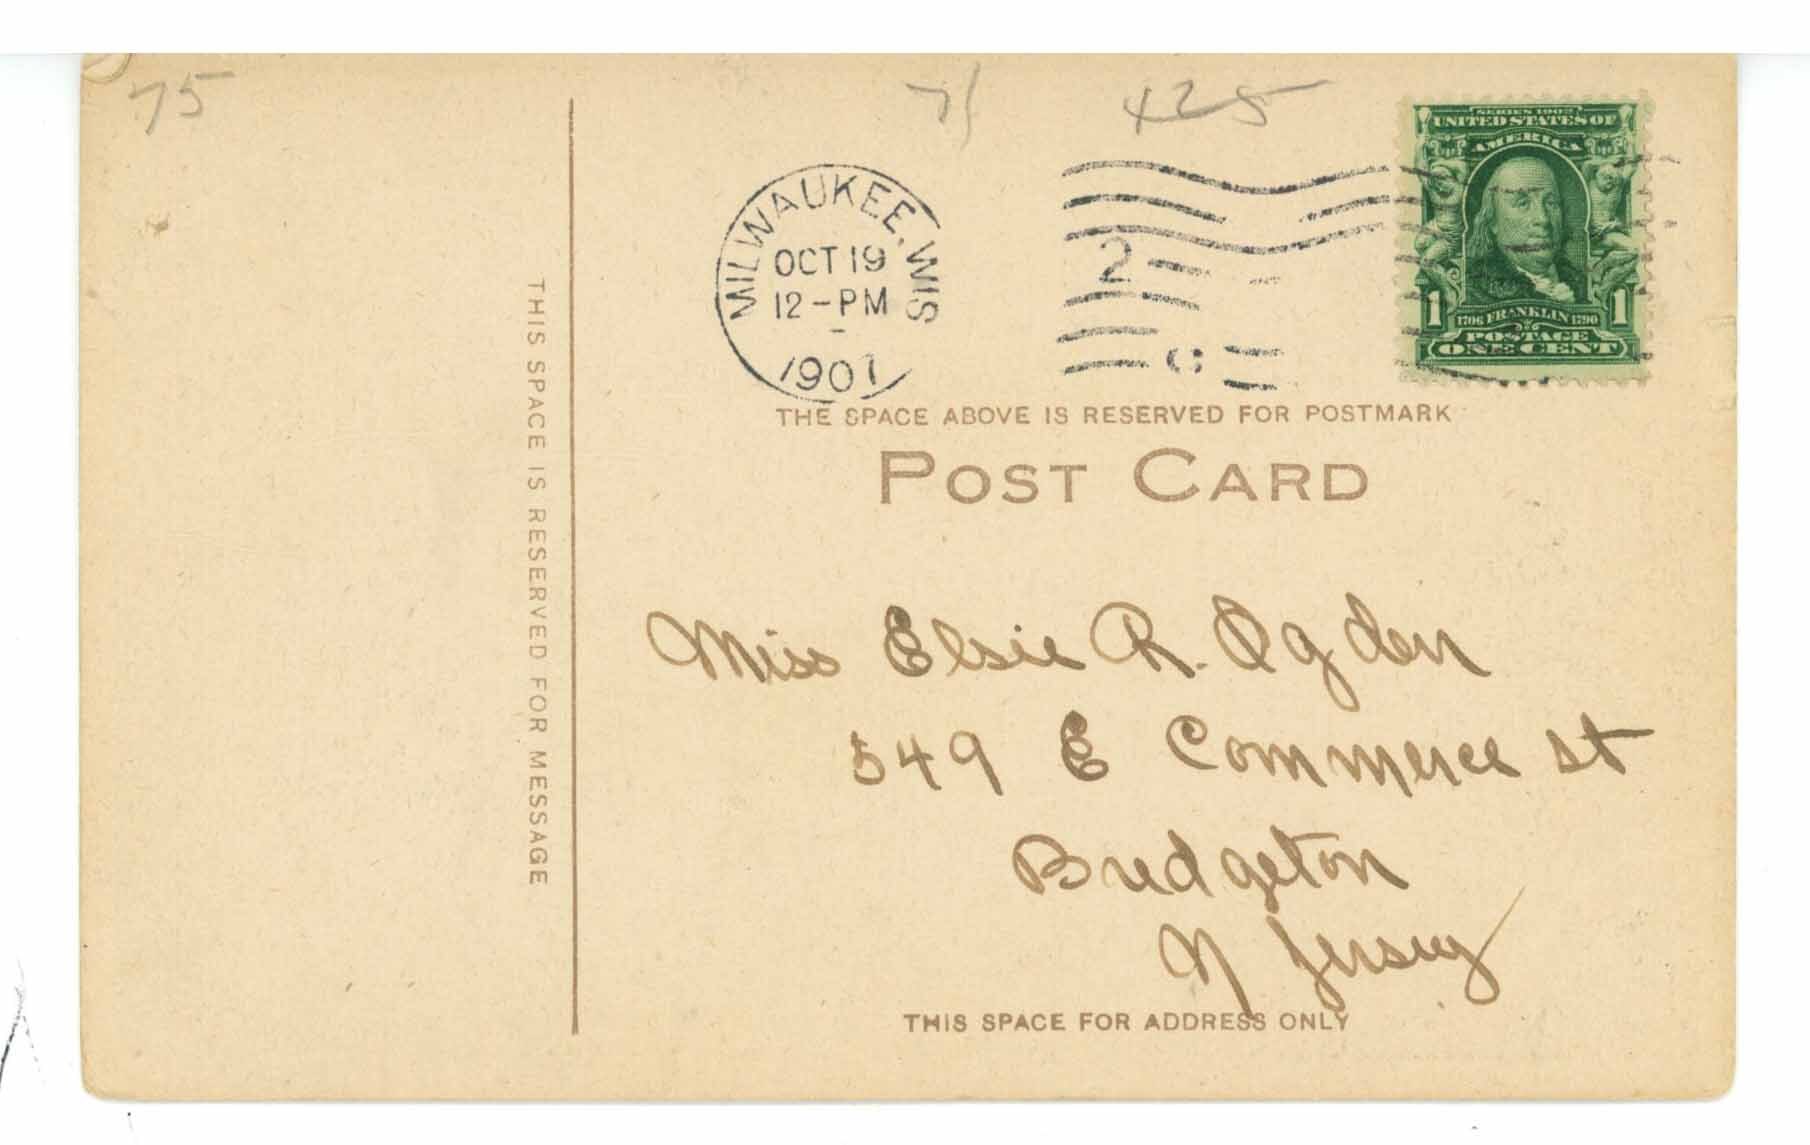 75
71
425
SERIES 1902
UNITED STATES OF
AMERICA
1 1
1706 FRANKLIN 1790
POSTAGE
ONE CENT
MILWAUKEE, WIS
OCT 19
12-PM
1907
2
C
THE SPACE ABOVE IS RESERVED FOR POSTMARK
POST CARD
THIS SPACE IS RESERVED FOR MESSAGE
Miss Elsie R. Ogden
549 E Commerce st
Bridgeton
N Jersey
THIS SPACE FOR ADDRESS ONLY